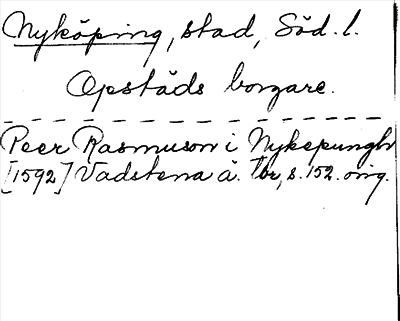 Nyköping, stad, Söd. l.
Opstäds borgare.
Peer Rasmuson i Nykepungh
[1592] Vadstena ä. tbr, s. 152. orig.